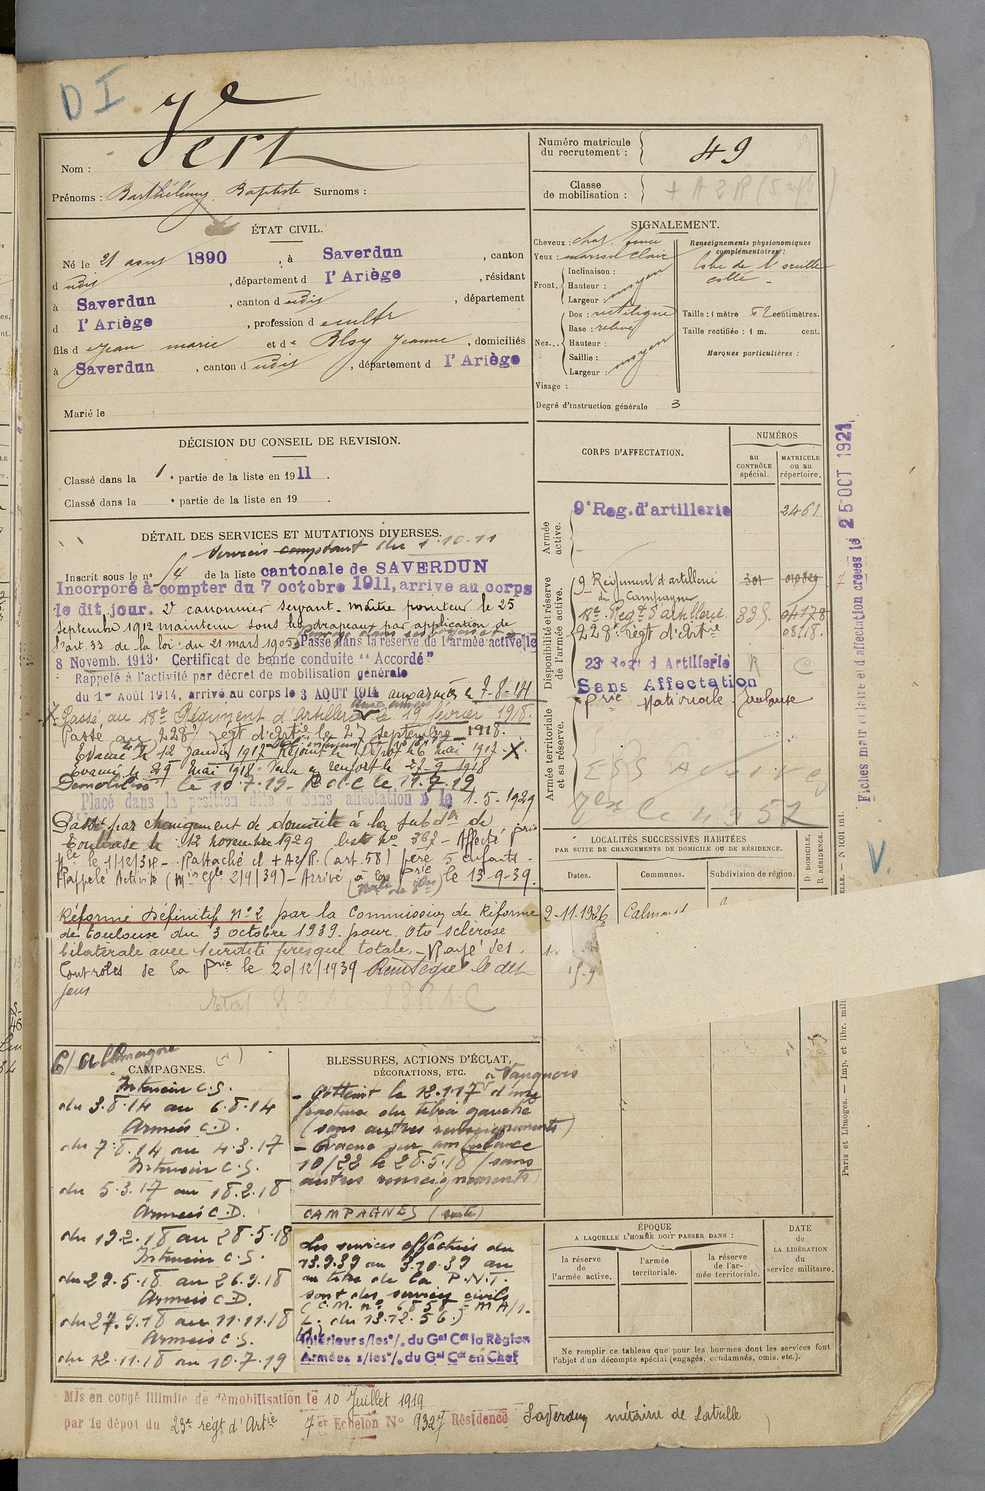 D I
Vert
Nom :
Prénoms : Barthélémy Baptiste Surnoms :
Numéro matricule du recrutement : 49
Classe de mobilisation :
ÉTAT CIVIL.
Né le 21 aout 1890 , à Saverdun , canton
d udis , département d l'Ariège , résidant
à Saverdun , canton d udis , département
d l'Ariège , profession d cultr
fils d Jean marie et de Jeanne , domiciliés
à Saverdun , canton d udis , département d l'Ariège
Marié le
SIGNALEMENT.
Cheveux : chat. foncé
Yeux : marron clair
Front, Inclinaison :
Hauteur : moyen
Largeur :
Nez... Dos : rectiligne
Base : relevé
Hauteur :
Saillie : moyen
Largeur :
Visage :
Degré d'instruction générale 3
Renseignements physionomiques complémentaires :
lobe de l'oreille
collé
Taille : 1 mètre centimètres.
Taille rectifiée : 1 m. cent.
Marques particulières :
DÉCISION DU CONSEIL DE REVISION.
Classé dans la 1e partie de la liste en 1911 .
Classé dans la e partie de la liste en 19 .
DÉTAIL DES SERVICES ET MUTATIONS DIVERSES.
Services comptant du 1.10.11
Inscrit sous le n° 14 de la liste cantonale de SAVERDUN
Incorporé à compter du 7 octobre 1911, arrivé au corps
le dit jour. 2e canonnier servant. Maître pointeur le 25
Septembre 1912 maintenu sous les drapeaux par application de
l'art. 33 de la loi du 21 mars 1905 Passé dans la réserve de l'armée active le
8 Novemb. 1913. Certificat de bonne conduite "Accordé"
Rappelé à l'activité par décret de mobilisation générale
du 1er Août 1914, arrivé au corps le 3 AOUT 1914 aux armées le 7-8-14
Passé au 18e Régiment d'Artillerie le 19 février 1918.
Passé au 228e Régt d'Artie le 27 septembre 1918.
Evacué le 12 Janvier 1917 mai 1917. X
Evacué le 29 mai 1918. en renfort le 27-9-1918
Démobilisé le 10-7-19
Placé dans la position dite « Sans affectation » le 1-5-1929
Passé par changement de domicile à la subdon de
Toulouse le 12 novembre 1929 liste No 362 - Affecté prie
le 1/12/38 - Rattaché cl + A2/R. (art. 58) père 5 enfants.
Rappelé Activité (Mon Gle 2/9/39) - Arrivé à la prie le 13-9-39.
Réformé Définitif No 2 par la Commission de Réforme
de Toulouse du 3 octobre 1939 pour Oto sclérose
bilatérale avec surdité presque totale. - Rayé des
Contrôles de la prie le 20/12/1939
CORPS D'AFFECTATION.
NUMÉROS
au CONTRÔLE spécial.
MATRICULE ou au répertoire.
Armée active.
9e Reg. d'artillerie 2461
Disponibilité et réserve de l'armée active.
9e Régiment d'artillerie
de Campagne
18e Regt d'artillerie 335
228e Regt d'Artie
23e Regt d'Artillerie R C
Sans Affectation
Armée territoriale et sa réserve.
Prie Nationale Toulouse
Fiches matriculaire et d'affectation créées le 25 OCT 1921
LOCALITÉS SUCCESSIVES HABITÉES
PAR SUITE DE CHANGEMENTS DE DOMICILE OU DE RÉSIDENCE.
Dates.
Communes.
Subdivision de région.
D. DOMICILE, R. RÉSIDENCE.
2-11-1926 Calmont
V.
C/ allemagne
CAMPAGNES.
Intérieur C.S.
du 3.8.14 au 6.8.14
Armées C.D.
du 7.8.14 au 4.3.17
Intérieur C.S.
du 5.3.17 au 18.2.18
Armées C.D.
du 19.2.18 au 28.5.18
Intérieur C.S.
du 29.5.18 au 26.9.18
Armées C.D.
du 27.9.18 au 11.11.18
Armées C.S.
du 12.11.18 au 10.7.19
BLESSURES, ACTIONS D'ÉCLAT,
DÉCORATIONS, ETC.
à Vauquois
- Atteint le 12.1.17 d'une
fracture du tibia gauche
(sans autres renseignements)
- Evacué sur ambulance
10/22 le 28.5.18 (sans
autres renseignements)
CAMPAGNES (suite)
Les services effectués du
13.9.39 au 3.10.39 au
au titre de la P.N.T.
sont des services civils
(C.M. no 6858 MA/1.
L. du 13.12.56.)
Intérieur s/les o/. du Gal Cdt la Région
Armées s/les o/. du Gal Cdt en Chef
ÉPOQUE
A LAQUELLE L'HOMME DOIT PASSER DANS :
la réserve de l'armée active.
l'armée territoriale.
la réserve de l'armée territoriale.
DATE de LA LIBÉRATION du service militaire.
Ne remplir ce tableau que pour les hommes dont les services font
l'objet d'un décompte spécial (engagés, condamnés, omis, etc.).
Paris et Limoges. — Imp. et libr. mili
Mis en congé illimité de démobilisation le 10 Juillet 1919
par le dépôt du 23e régt d'Artie 7er Echelon No 9327 Résidence Saverdun métairie de